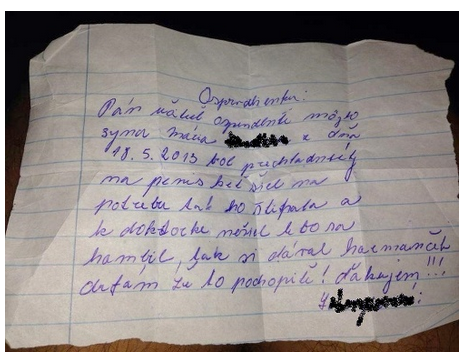 Pán učiteľ môjho
syna mária z dňa
18.5.2013 bol prechladnutý
na penis keď šiel na
potrebu tak ho štípalo a
k doktorke nešiel lebo sa
hambil, tak si dával harmanček
dúfam že to pochopíťe! ďakujem!!!